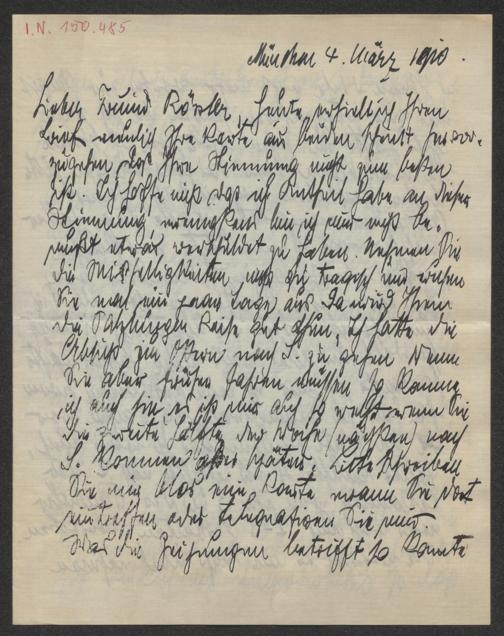 I.N. 150.485
München 4. März 1910.
Lieber Freund Rössler, heute erhielt ich Ihren
Brief neulich Ihre Karte aus beiden scheint hervor-
zugehen das Ihre Stimmung nicht zum besten
ist. Ich hoffe nicht das ich Antheil habe an dieser
Stimmung, wenigstens bin ich mir nicht be-
wußt etwas verschuldet zu haben. Nehmen Sie
die Mißhelligkeiten nicht zu tragisch und ruhen
Sie nun ein paar Tage aus. Da wird Ihnen
die Salzburger Reise gut thun, Ich hatte die
Absicht zu Ostern nach S. zu gehen wenn
Sie aber früher fahren müssen so komme
ich auch hin es ist mir auch so recht wenn Sie
die zweite Hälfte der Woche (nächsten) nach
S. kommen oder später. Bitte schreiben
Sie mir blos eine Karte wann Sie dort
eintreffen oder telegrafieren Sie mir.
Was die Zeichnungen betrifft so konnte